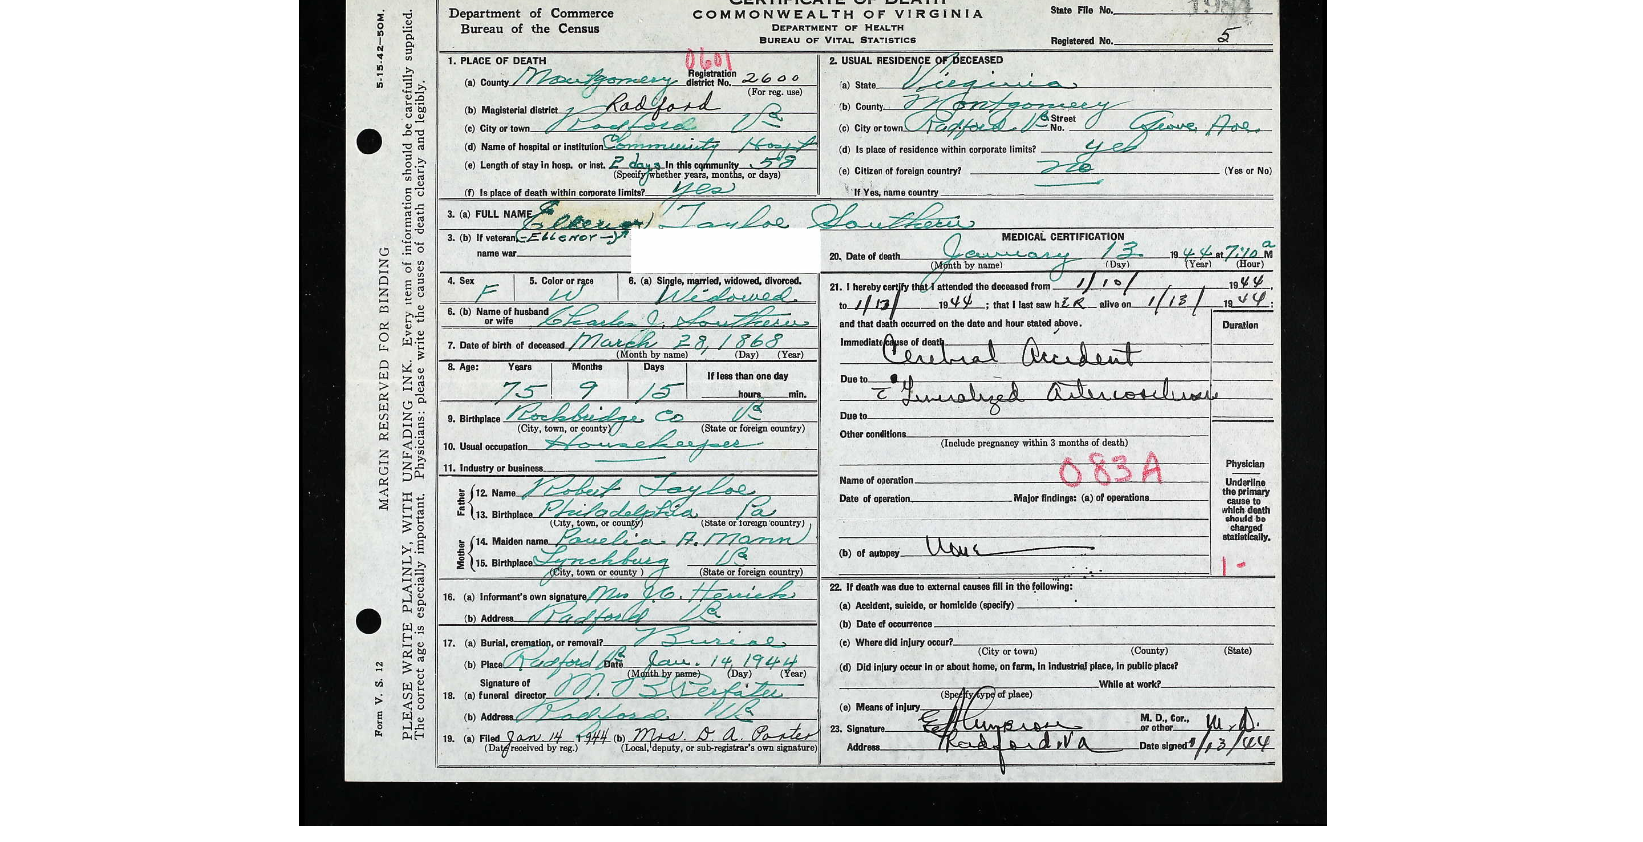 CERTIFICATE OF DEATH
Department of Commerce
Bureau of the Census
COMMONWEALTH OF VIRGINIA
DEPARTMENT OF HEALTH
BUREAU OF VITAL STATISTICS
State File No.
Registered No. 5
5-15-42-50M.
MARGIN RESERVED FOR BINDING
PLEASE WRITE PLAINLY, WITH UNFADING INK. Every item of information should be carefully supplied.
The correct age is especially important. Physicians: please write the causes of death clearly and legibly.
Form V. S. 12
1. PLACE OF DEATH 0601
(a) County Montgomery Registration district No. 2600
(For reg. use)
(b) Magisterial district Radford
(c) City or town Radford Va
(d) Name of hospital or institution Community Hospt
(e) Length of stay in hosp. or inst. 2 days In this community 58
(Specify whether years, months, or days)
(f) Is place of death within corporate limits? yes
2. USUAL RESIDENCE OF DECEASED
(a) State Virginia
(b) County Montgomery
(c) City or town Radford Va Street No. Grove Ave,
(d) Is place of residence within corporate limits? yes
(e) Citizen of foreign country? no (Yes or No)
If Yes, name country
3. (a) FULL NAME Tayloe Southern
3. (b) If veteran, ELLENOR
name war
4. Sex F
5. Color or race W
6. (a) Single, married, widowed, divorced. Widowed
6. (b) Name of husband or wife Charles J. Southern
7. Date of birth of deceased March 28, 1868
(Month by name) (Day) (Year)
8. Age: Years Months Days If less than one day
75 9 15 hours min.
9. Birthplace Rockbridge Co Va
(City, town, or county) (State or foreign country)
10. Usual occupation Housekeeper
11. Industry or business
Father
12. Name Robert Tayloe
13. Birthplace Philadelphia Pa
(City, town, or county) (State or foreign country)
Mother
14. Maiden name A. Mann
15. Birthplace Lynchburg Va
(City, town, or county) (State or foreign country)
16. (a) Informant's own signature Mrs J.C.
(b) Address Radford Va
17. (a) Burial, cremation, or removal? Burial
(b) Place Radford Va Date Jan. 14, 1944
(Month by name) (Day) (Year)
Signature of
18. (a) funeral director
(b) Address Radford Va
19. (a) Filed Jan. 14 1944 (b) Mrs. D. A. Porter
(Date received by reg.) (Local, deputy, or sub-registrar's own signature)
MEDICAL CERTIFICATION
20. Date of death January 13 1944 at 7:10 a M
(Month by name) (Day) (Year) (Hour)
21. I hereby certify that I attended the deceased from 1/10/ 1944
to 1/13/ 1944; that I last saw hER alive on 1/13/ 1944;
and that death occurred on the date and hour stated above.
Duration
Immediate cause of death Cerebral Accident
Due to c Generalized Arteriosclerosis
Due to
Other conditions
(Include pregnancy within 3 months of death)
083A
Name of operation
Date of operation Major findings: (a) of operations
(b) of autopsy None
Physician
Underline the primary cause to which death should be charged statistically.
1-
22. If death was due to external causes fill in the following:
(a) Accident, suicide, or homicide (specify)
(b) Date of occurrence
(c) Where did injury occur?
(City or town) (County) (State)
(d) Did injury occur in or about home, on farm, in industrial place, in public place?
While at work?
(Specify type of place)
(e) Means of injury
23. Signature M. D., Cor., or other M.D.
Address Radford, Va Date signed 1/13/44